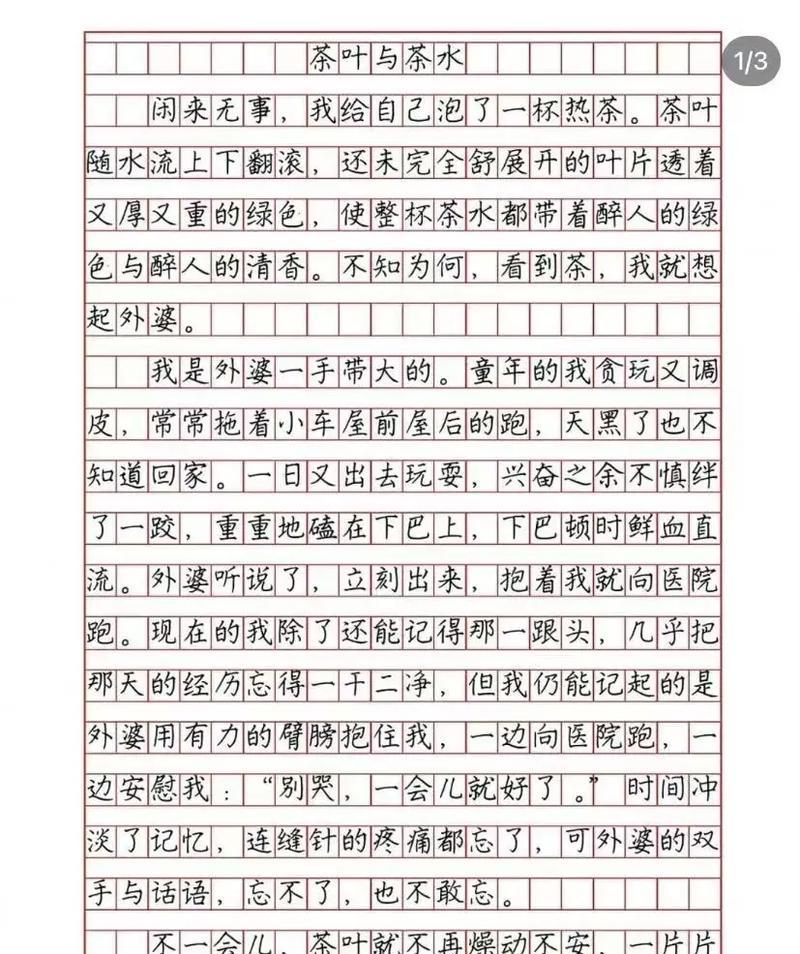 茶叶与茶水
1/3
闲来无事，我给自己泡了一杯热茶。茶叶
随水流上下翻滚，还未完全舒展开的叶片透着
又厚又重的绿色，使整杯茶水都带着醉人的绿
色与醉人的清香。不知为何，看到茶，我就想
起外婆。
我是外婆一手带大的。童年的我贪玩又调
皮，常常拖着小车屋前屋后的跑，天黑了也不
知道回家。一日又出去玩耍，兴奋之余不慎绊
了一跤，重重地磕在下巴上，下巴顿时鲜血直
流。外婆听说了，立刻出来，抱着我就向医院
跑。现在的我除了还能记得那一跟头，几乎把
那天的经历忘得一干二净，但我仍能记起的是
外婆用有力的臂膀抱住我，一边向医院跑，一
边安慰我：“别哭，一会儿就好了。”时间冲
淡了记忆，连缝针的疼痛都忘了，可外婆的双
手与话语，忘不了，也不敢忘。
不一会儿，茶叶就不再燥动不安，一片片